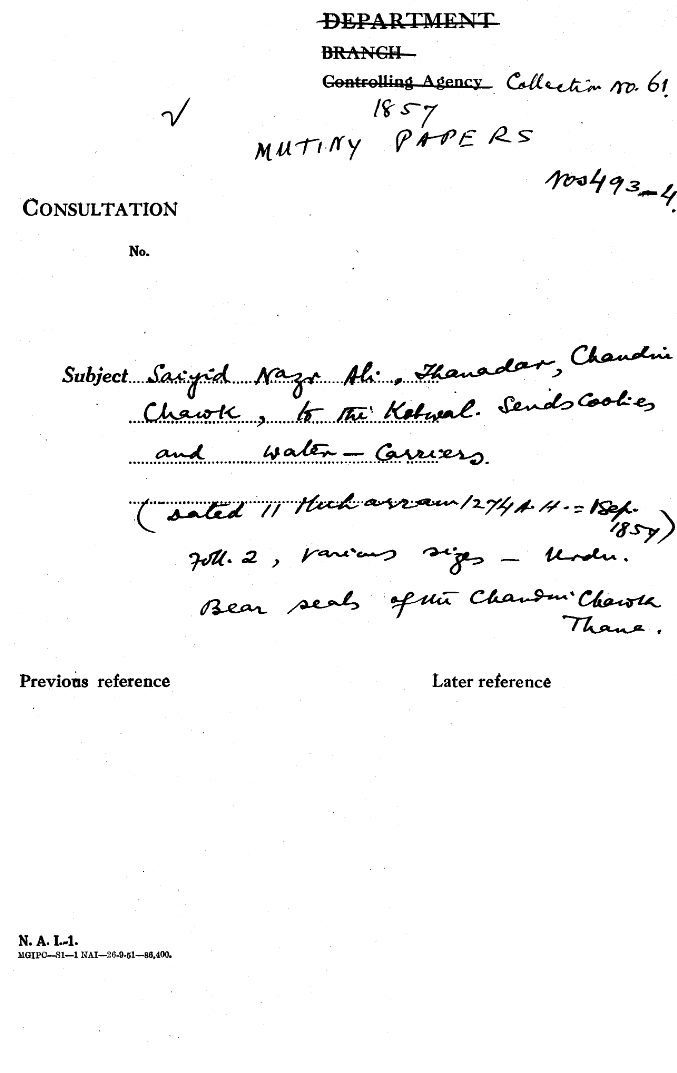 DEPARTMENT
BRANCH
Controlling Agency Collection No. 61.
1857
MUTINY PAPERS
Nos 493-4.
CONSULTATION
No.
Subject Saiyid Nazr Ali, Thanadar, Chandni
Chawk, to the Kotwal. Sends Coolies
and water-Carriers.
(dated 11 Muharram 1274 A.H. = 1 Sep.
1857)
Foll. 2, various sizes - Urdu.
Bear seals of the Chandni Chawk
Thana.
Previous reference Later reference
N. A. I.-1.
MGIPC—S1—1 NAI—26-9-51—86,400.